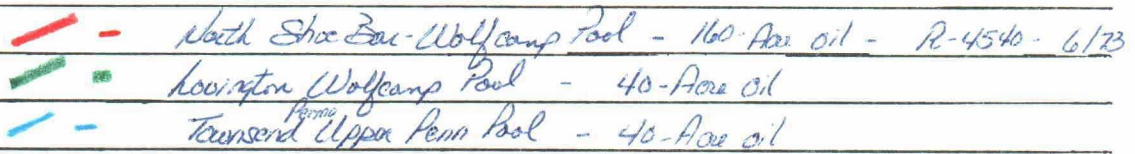 North Shoe Bar-Wolfcamp Pool - 160-Acre oil - R-4540 - 6/73
Lovington Wolfcamp Pool - 40-Acre oil
Permo
Townsend Upper Penn Pool - 40-Acre oil